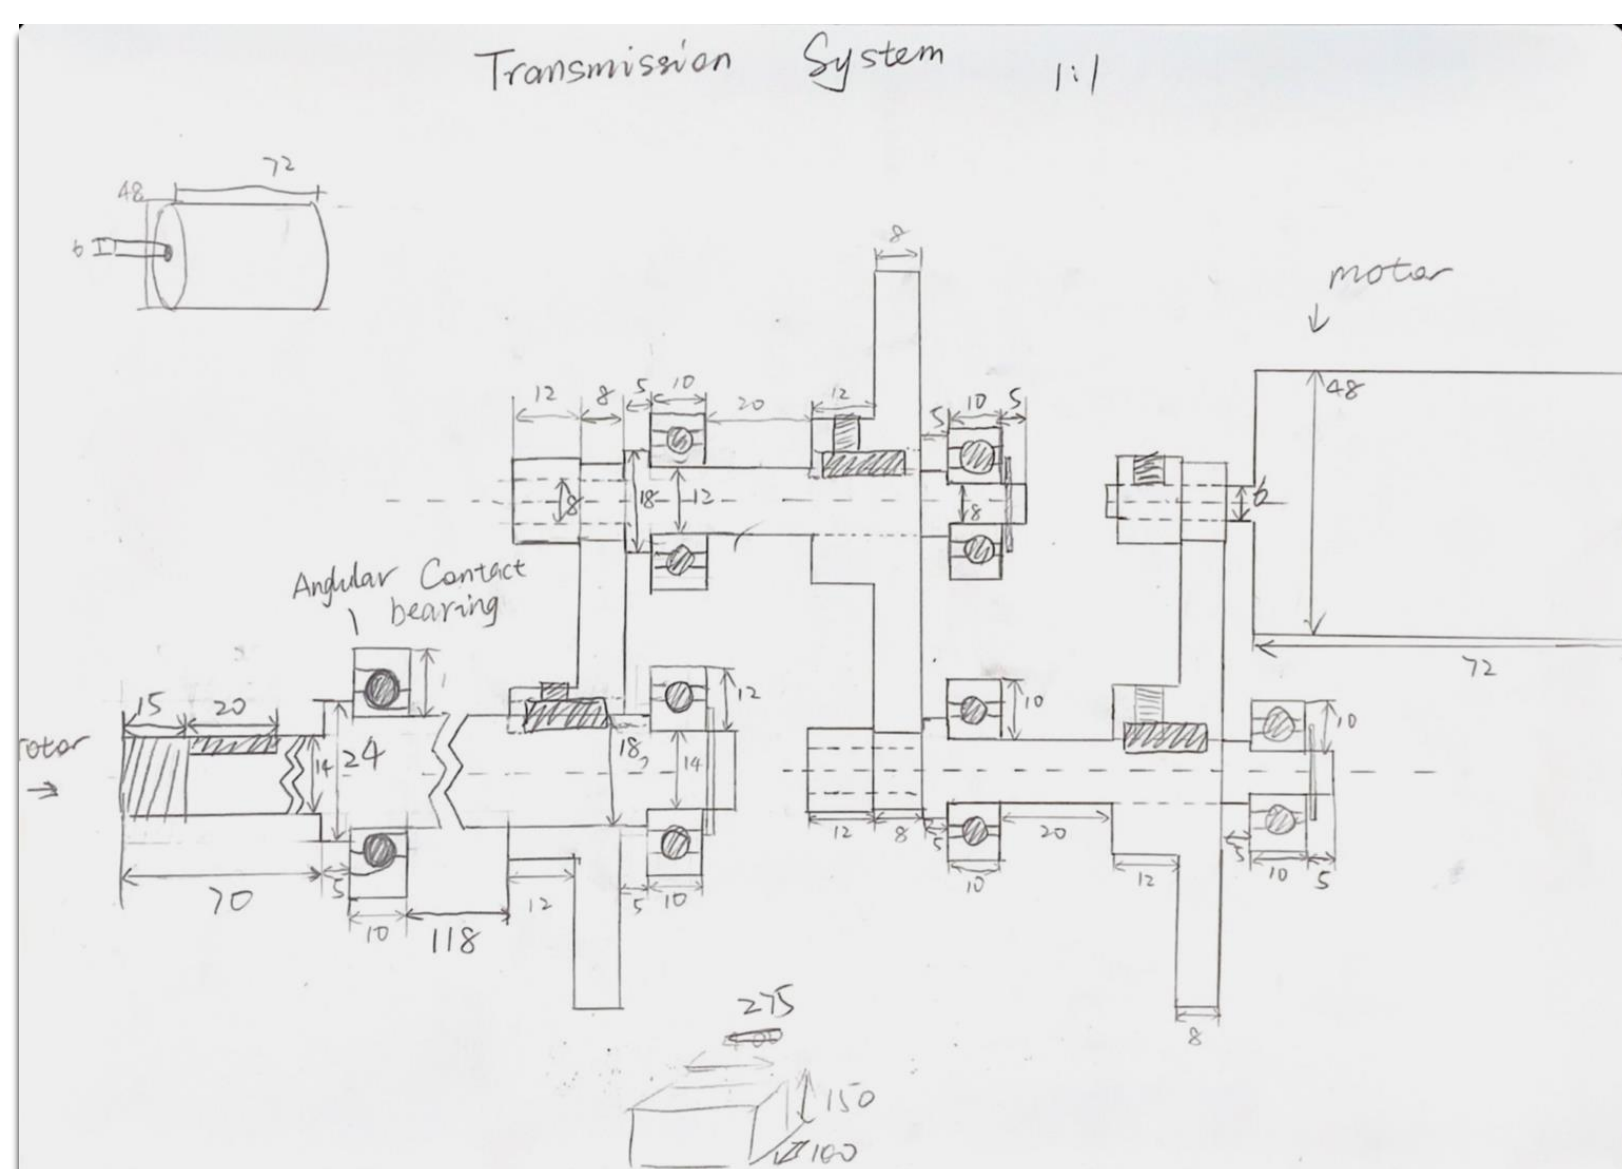 Transmission System 1:1
72
48
6
8
motor
48
12 8 5 10 20 12 5 10 5
8 18 12 8 6
Angular Contact
bearing
72
15 20 12 10 10
rotor
14 24 18 14
12 8 5 10 20 12 5 10 5
70 5 10 118 12 5 10
8
275
150
100